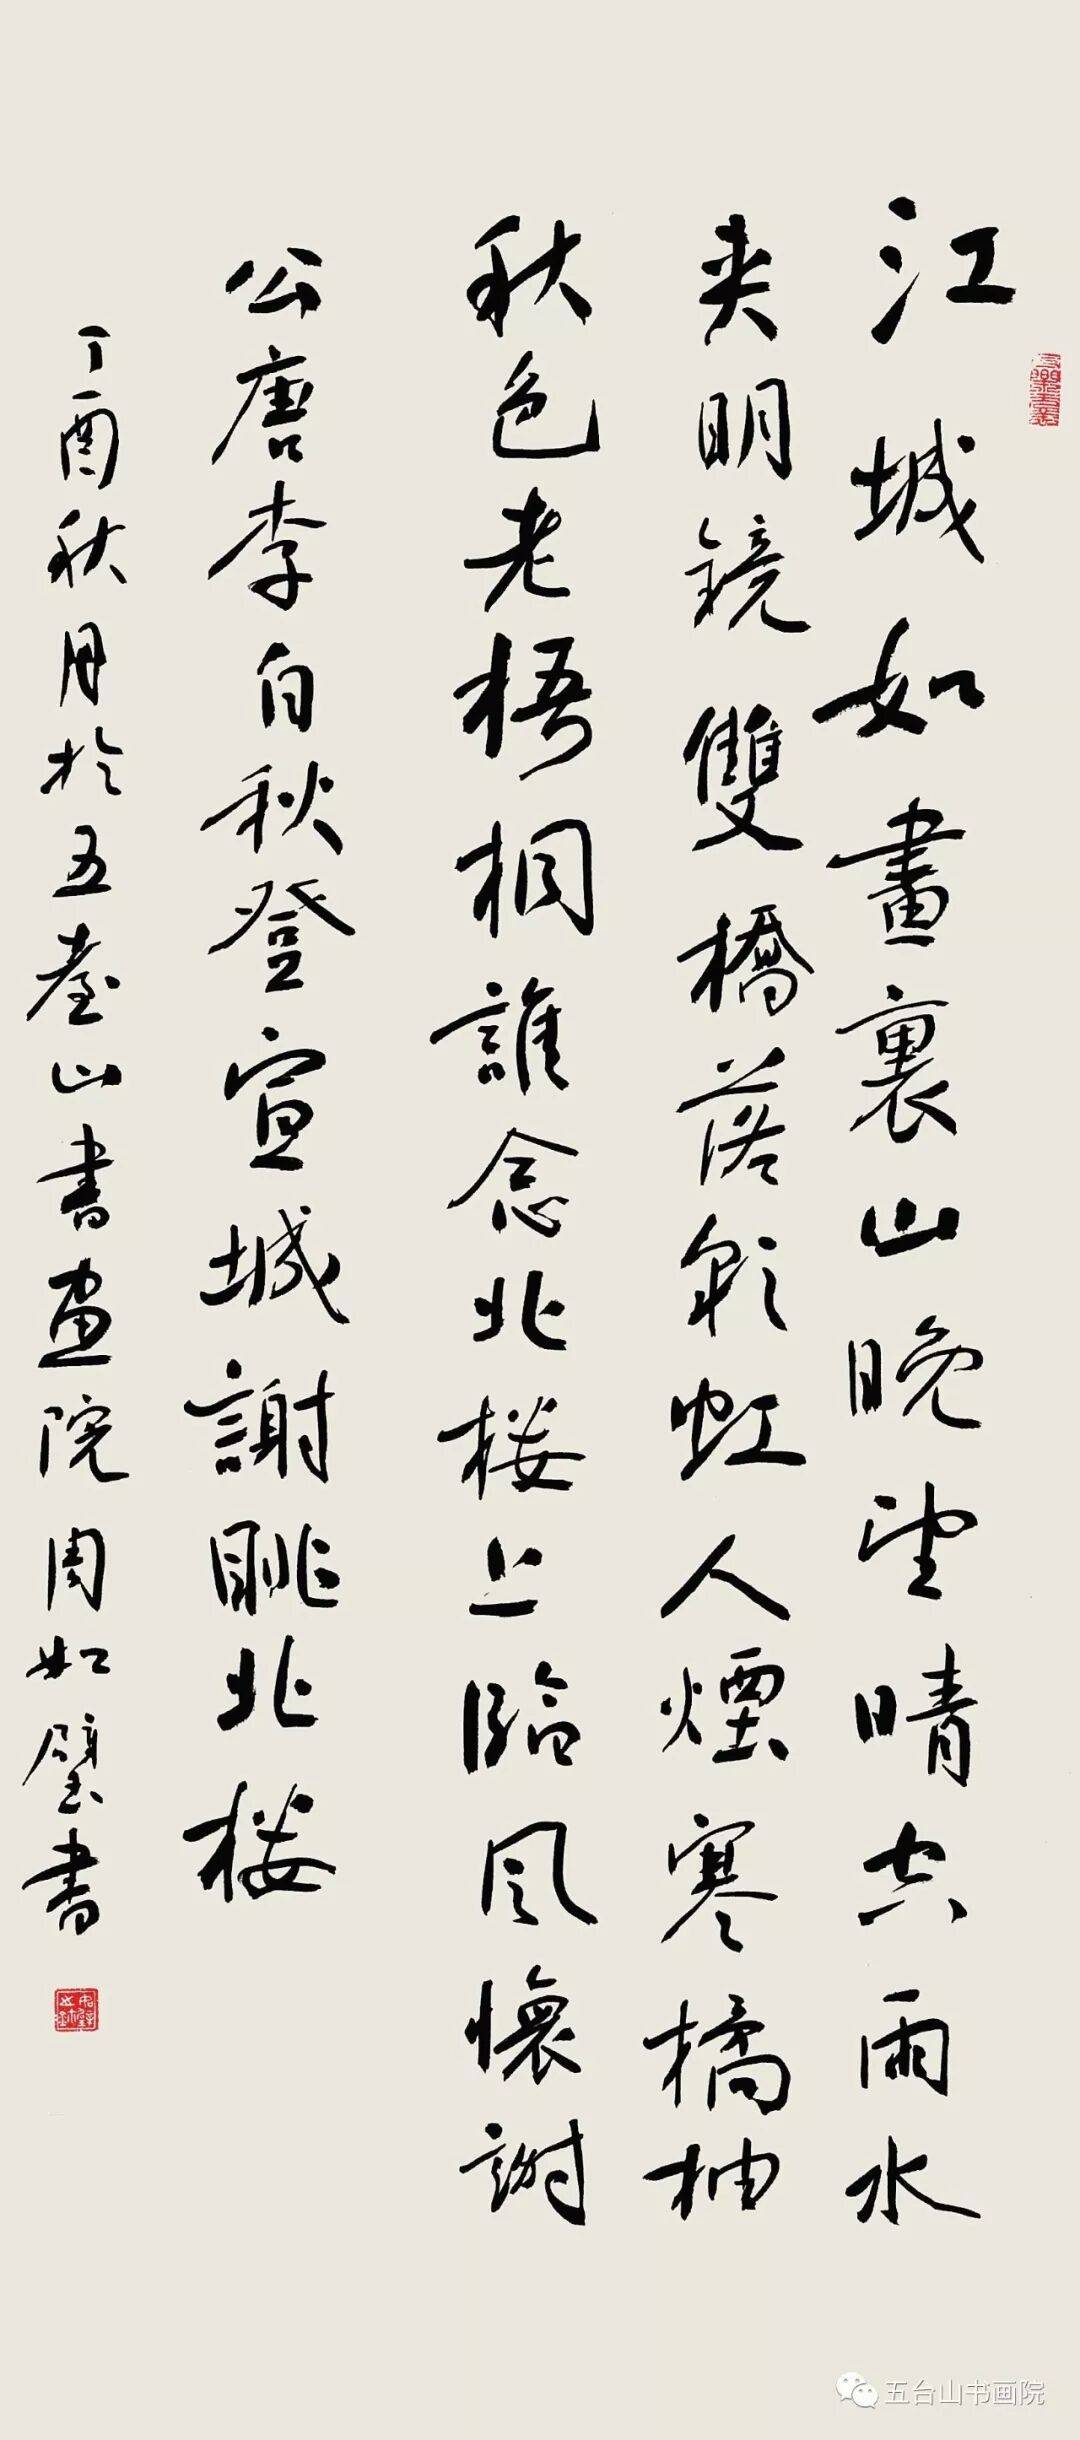 江城如畫裏山晚望晴空雨水
夾明鏡雙橋落彩虹人煙寒橘柚
秋色老梧桐誰念北楼上臨风懷謝
公唐李白秋登宣城謝眺北楼
丁酉秋月於五臺山書画院周如璧書
五台山书画院